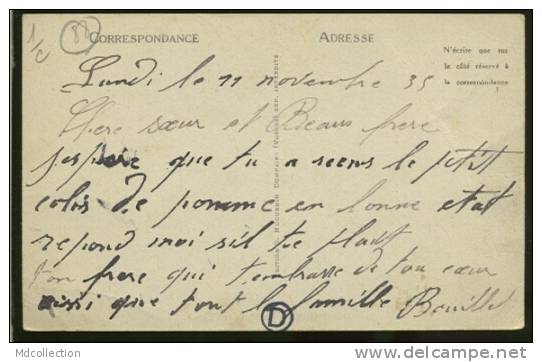 1/c
88
CORRESPONDANCE
ADRESSE
N'écrire que sur
le côté réservé à
la correspondance
Lundi le 11 novembre 35
Chere sœur et Beaus frere
jespere que tu a seens le petit
colis de pomme en bonne etat
repond moi sil te plait
ton frere qui tembrasse de tou cœur
ainsi que tout la famille Bouillet
D
Mdcollection
www.delcampe.net